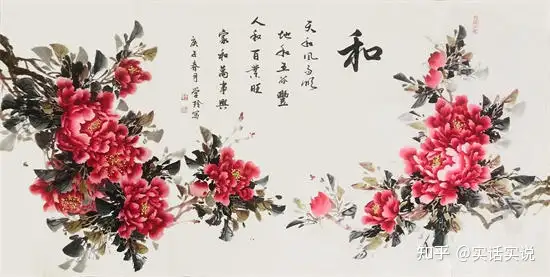 和
天和风雨顺
地和五谷豐
人和百業旺
家和萬事興
庚子春月
知乎 @实话实说